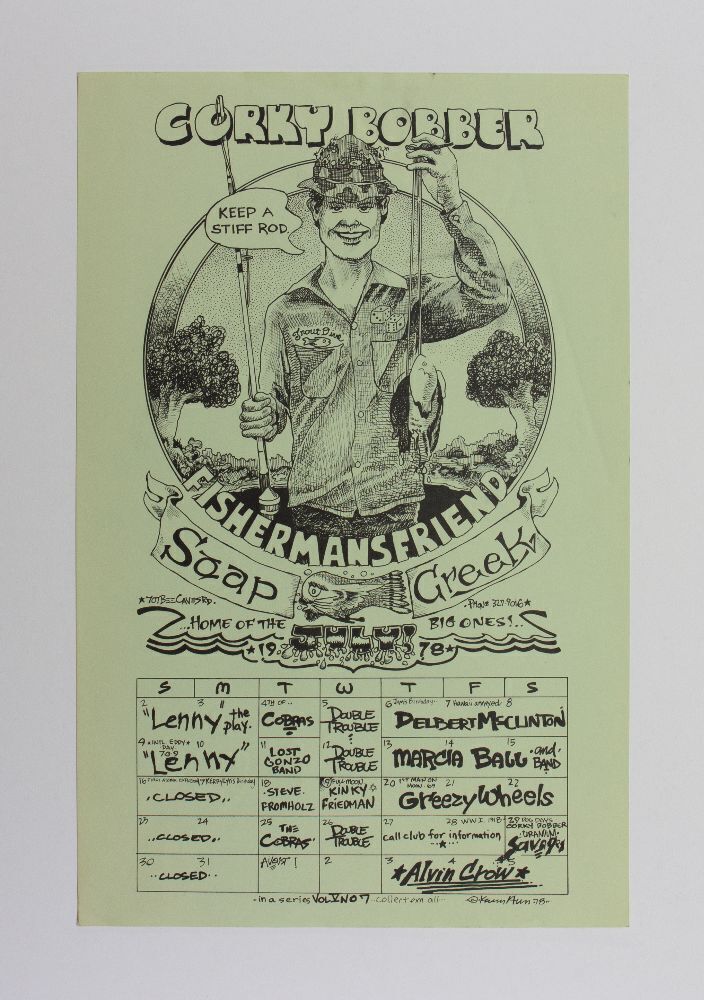 CORKY BOBBER
KEEP A
STIFF ROD
Trout Dive
FISHERMANSFRIEND
Soap Creek
★707 BEE CAVES RD.
·PHONE 327-9016★
...HOME OF THE BIG ONES!..
JULY!
★19 78★
S M T W T F S
2 3 4TH OF.. 5 6 7 Hawaii annexed 8
"Lenny the play.
COBRAS
DOUBLE
TROUBLE
DELBERT McCLINTON
9 10 11 12 13 14 15
"Lenny"
LOST
GONZO
BAND
DOUBLE
TROUBLE
MARCIA BALL and
BAND
16 17 18 19 FULL MOON 20 1ST MAN ON MOON-69 21 22
·CLOSED..
·STEVE·
FROMHOLZ
KINKY
FRIEDMAN
Greezy Wheels
24 25 26 27 28 WW I 1914 29 DOG DAYS
..CLOSED..
THE
COBRAS
DOUBLE
TROUBLE
call club for information
CORKY BOBBER
URANIUM
Savages
30 31 AUGUST! 2 3 4 5
··CLOSED··
★Alvin Crow★
·in a series VOL. V NO 7 ··collect em all··